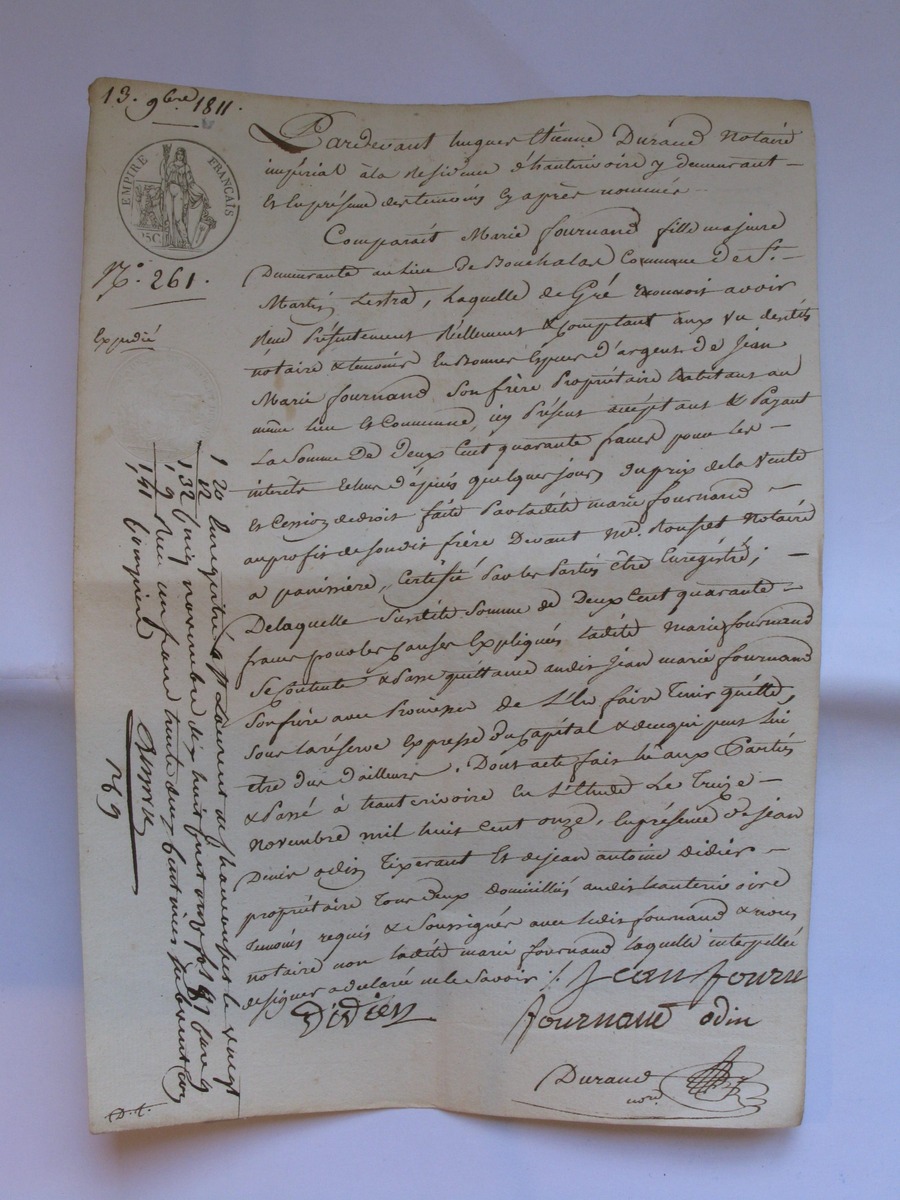 13. 9bre 1811.
EMPIRE FRANÇAIS
50C
N.o 261.
Expédié
Pardevant hugues Etienne Durand Notaire
impérial à la Residence d'hauterivoire y demeurant
Et En présence des temoins Cy après nommés
Comparait Marie fournand fille majeure
Demeurante au Lieu de Bouchalas Commune de St.
Martin Lestrad, Laquelle de Gré reconnoit avoir
Reçu Présentement Réellement & Comptant aux vu desdits
notaire & temoins En Bonnes Espèces d'argent de Jean
Marie fournand Son frère Propriétaire habitant au
même Lieu & Commune, icy Présent acceptant & Payant
La Somme De Deux Cent quarante francs pour les
interets Echus depuis quelques jours du prix de la Vente
Et Cession de droit faite Par ladite marie fournand
au profit de Son dit frère Devant Me. Rousset Notaire
a panissière, Certifié Par les Parties être Enregistré;
De laquelle Susdite Somme de Deux Cent quarante
francs pour les Causes Expliqués Ladite Marie fournand
Se Contente & Passe quittance audit Jean marie fournand
Son frère avec Promesse de L'En faire Tenir quitte,
Sous la réserve Expresse du Capital & de ce qui peut Lui
être due d'ailleurs. Dont acte fait lû aux Parties
& Passé à hauterivoire En L'Etude Le Treize
novembre mil huit Cent onze, En présence de jean
Denis odin Tixerant Et de jean antoine didier
propriétaire Tous deux domiciliés audit hauterivoire
Temoins requis & Soussignés avec ledit fournand & nous
notaire non ladite marie fournand laquelle interpellée
de signer a déclaré ne le Savoir ./.
jean fourn
Didier
fournand odin
Durand
nore.
1 20 Enregistré à St Laurent de Chamousset le vingt
12 cinq novembre dix huit cent onze fol 87 Case 9
1,32 Reçu un franc trente deux centimes subvention
,9
1,41 Comprise
269
D.t.